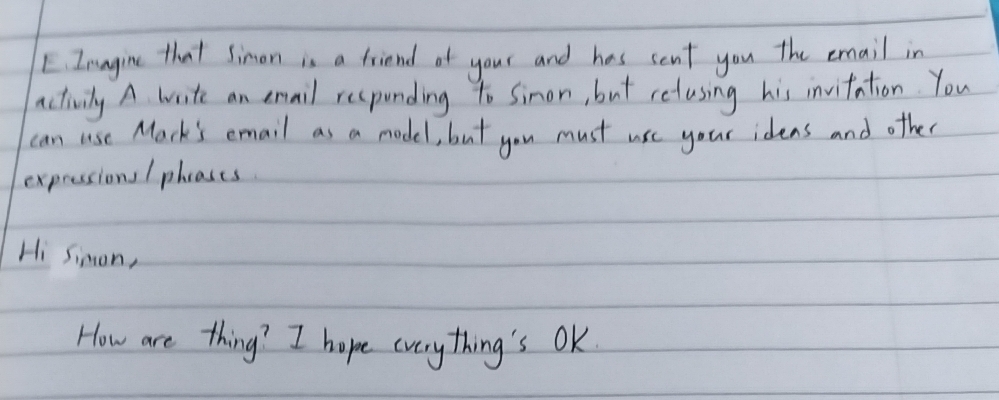 E. Imagine that Simon is a friend of your and has sent you the email in
activity A. Write an email responding to Simon, but refusing his invitation. You
can use Mark's email as a model, but you must use your ideas and other
expressions/phrases.
Hi Simon,
How are thing? I hope everything's OK.